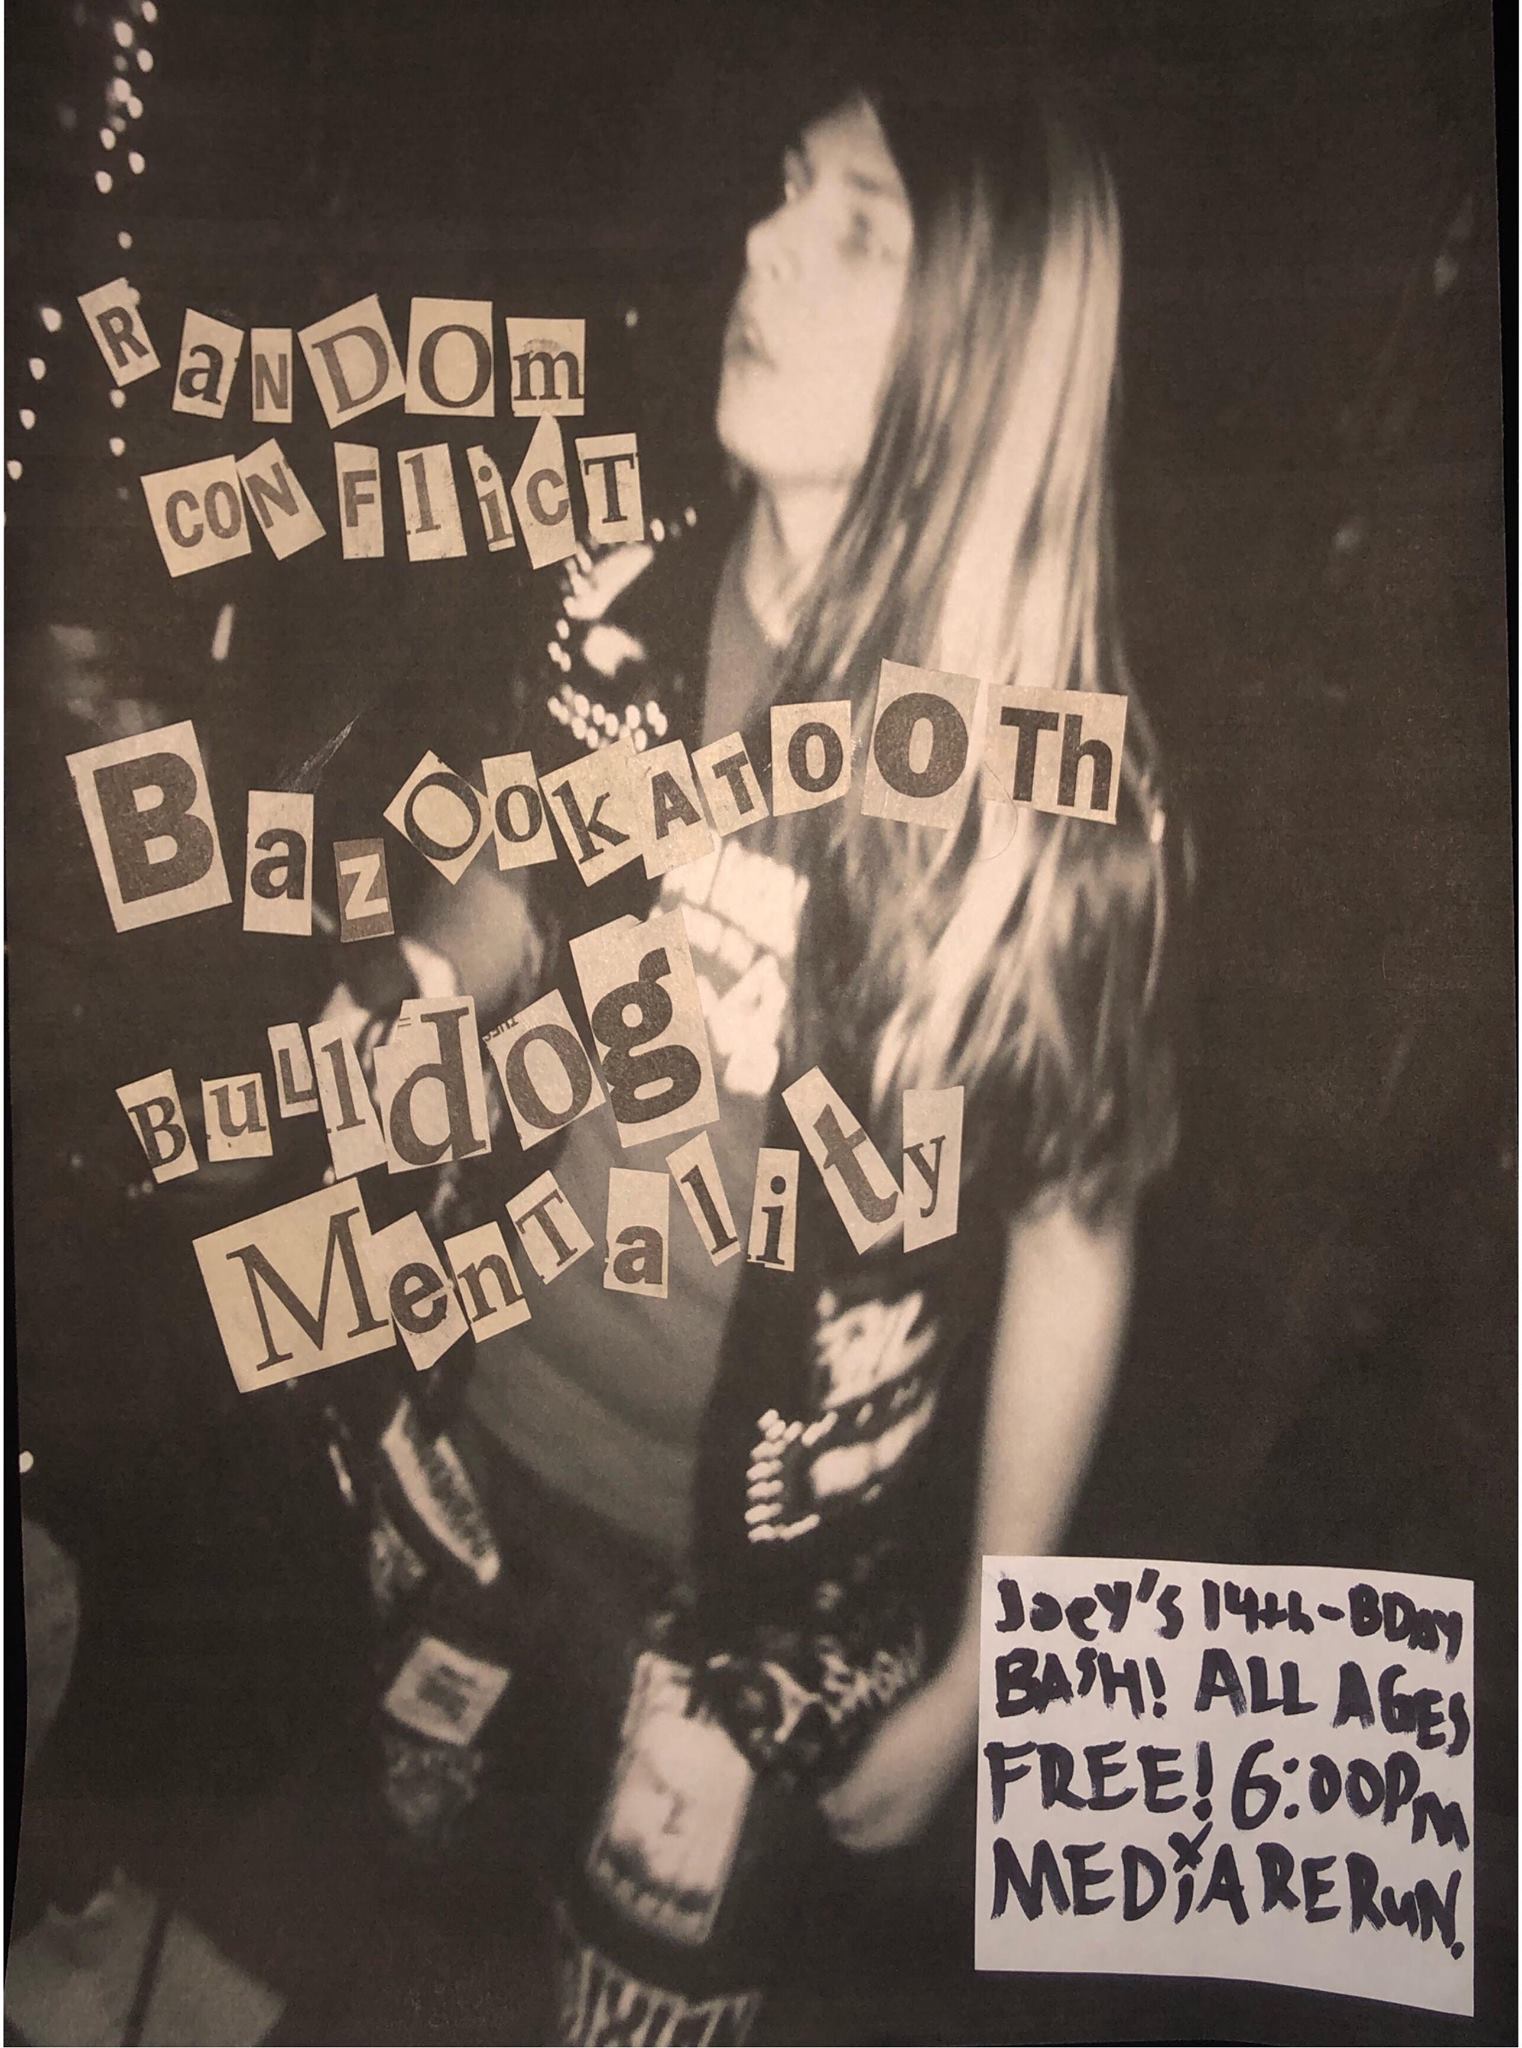 RaNDOm
CONFlicT
BazOokATOOTh
BuLldog
MenTality
Joey's 14th-BDay
BASH! ALL AGES
FREE! 6:00Pm
MEDiARERuN.